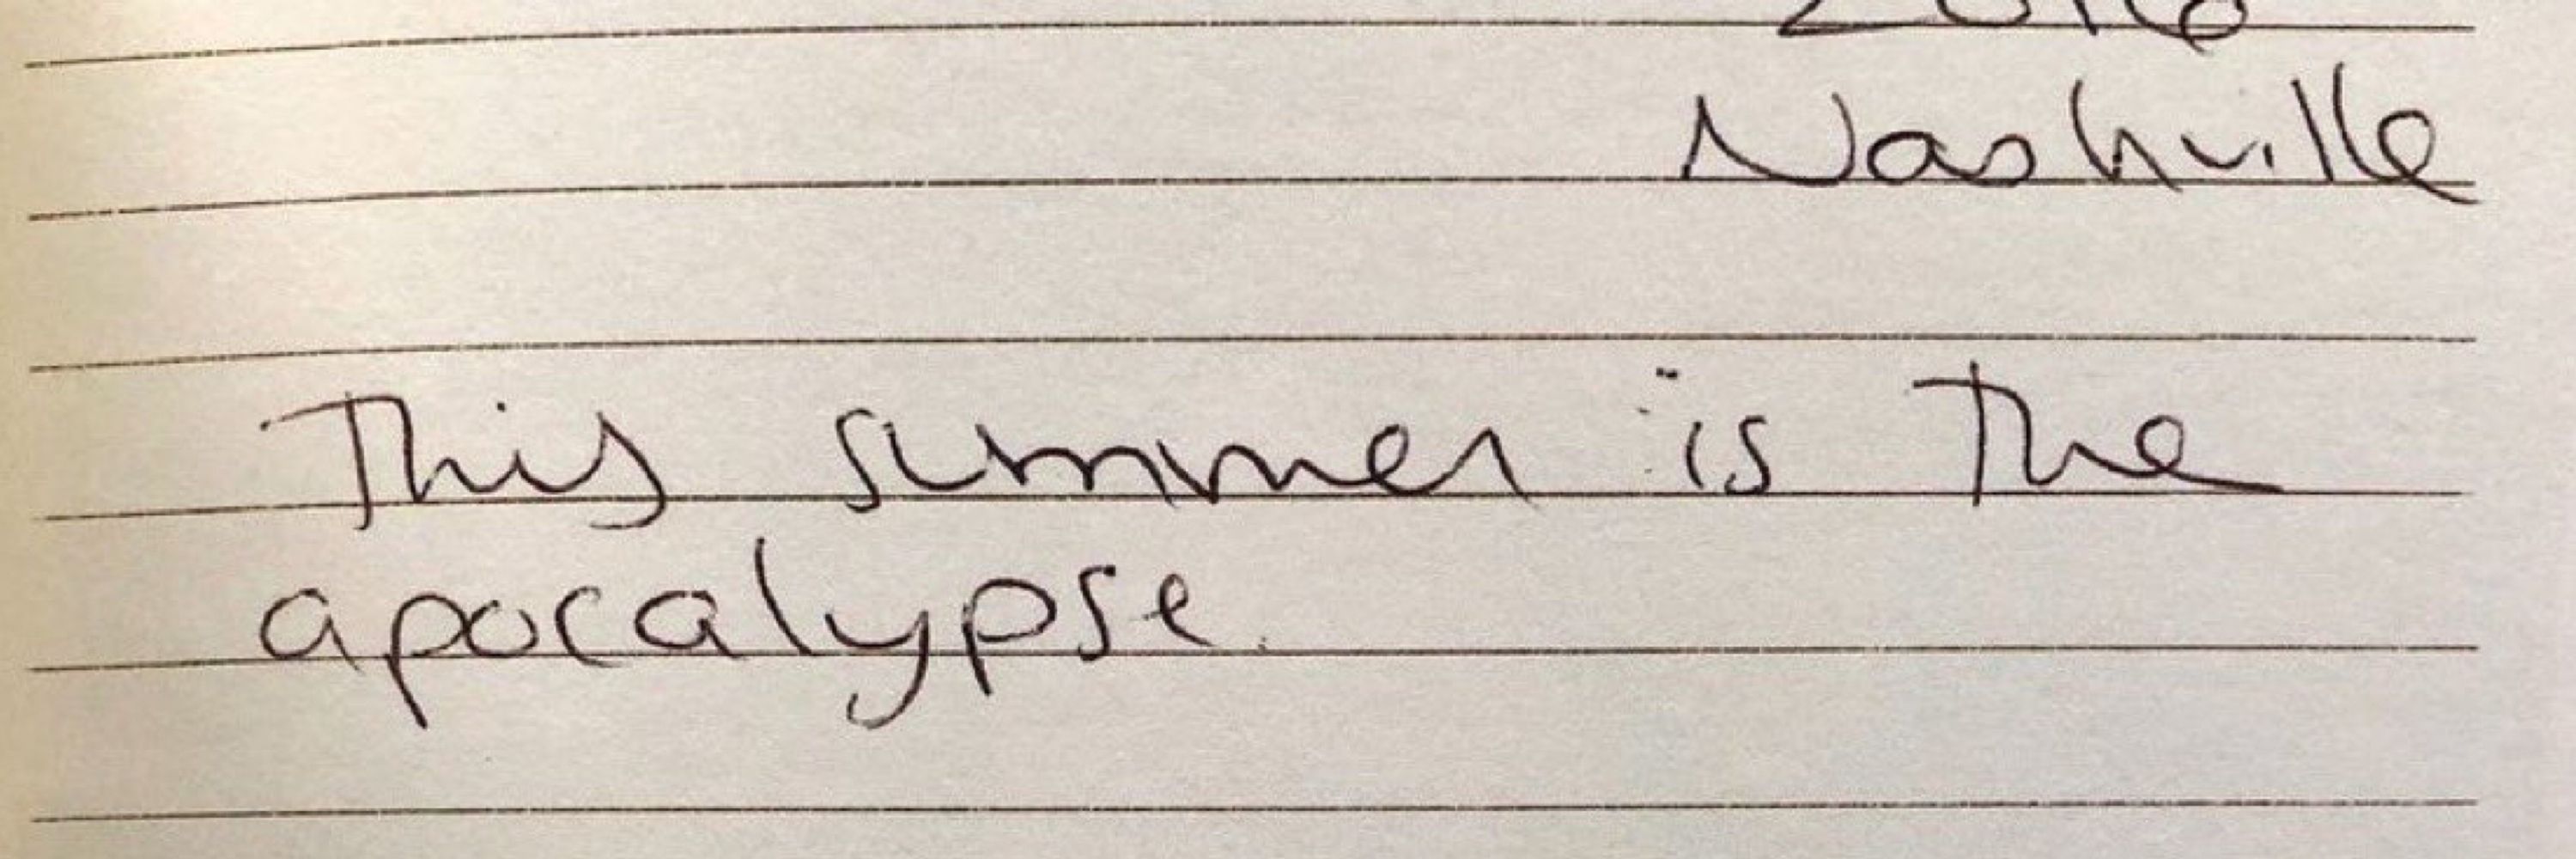 2016
Nashville
This summer is the
apocalypse.